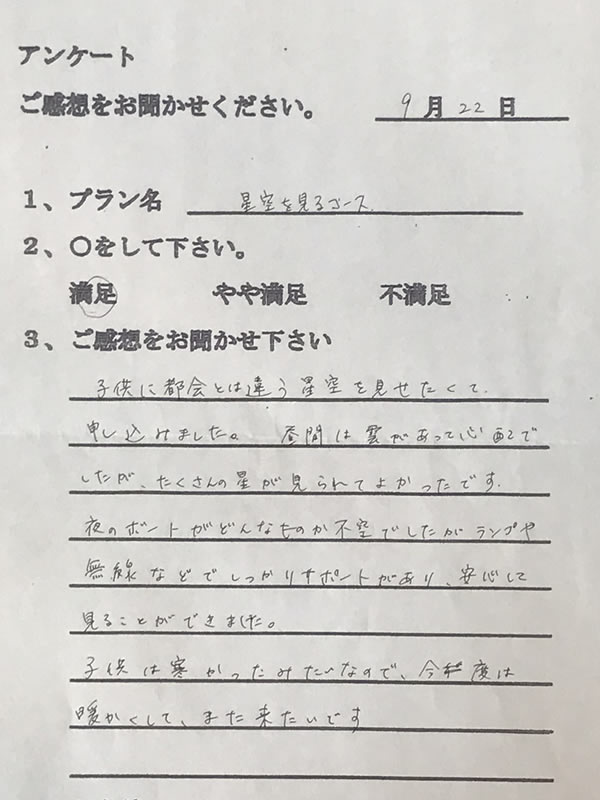 アンケート
ご感想をお聞かせください。 9月22日
1、プラン名 星空を見るコース
2、○をして下さい。
満足 やや満足 不満足
3、ご感想をお聞かせ下さい
子供に都会とは違う星空を見せたくて、
申し込みました。 昼間は雲があって心配で
したが、たくさんの星が見られてよかったです。
夜のボートがどんなものか不安でしたがランプや
無線などでしっかりサポートがあり、安心して
見ることができました。
子供は寒かったみたいなので、今度は
暖かくして、また来たいです